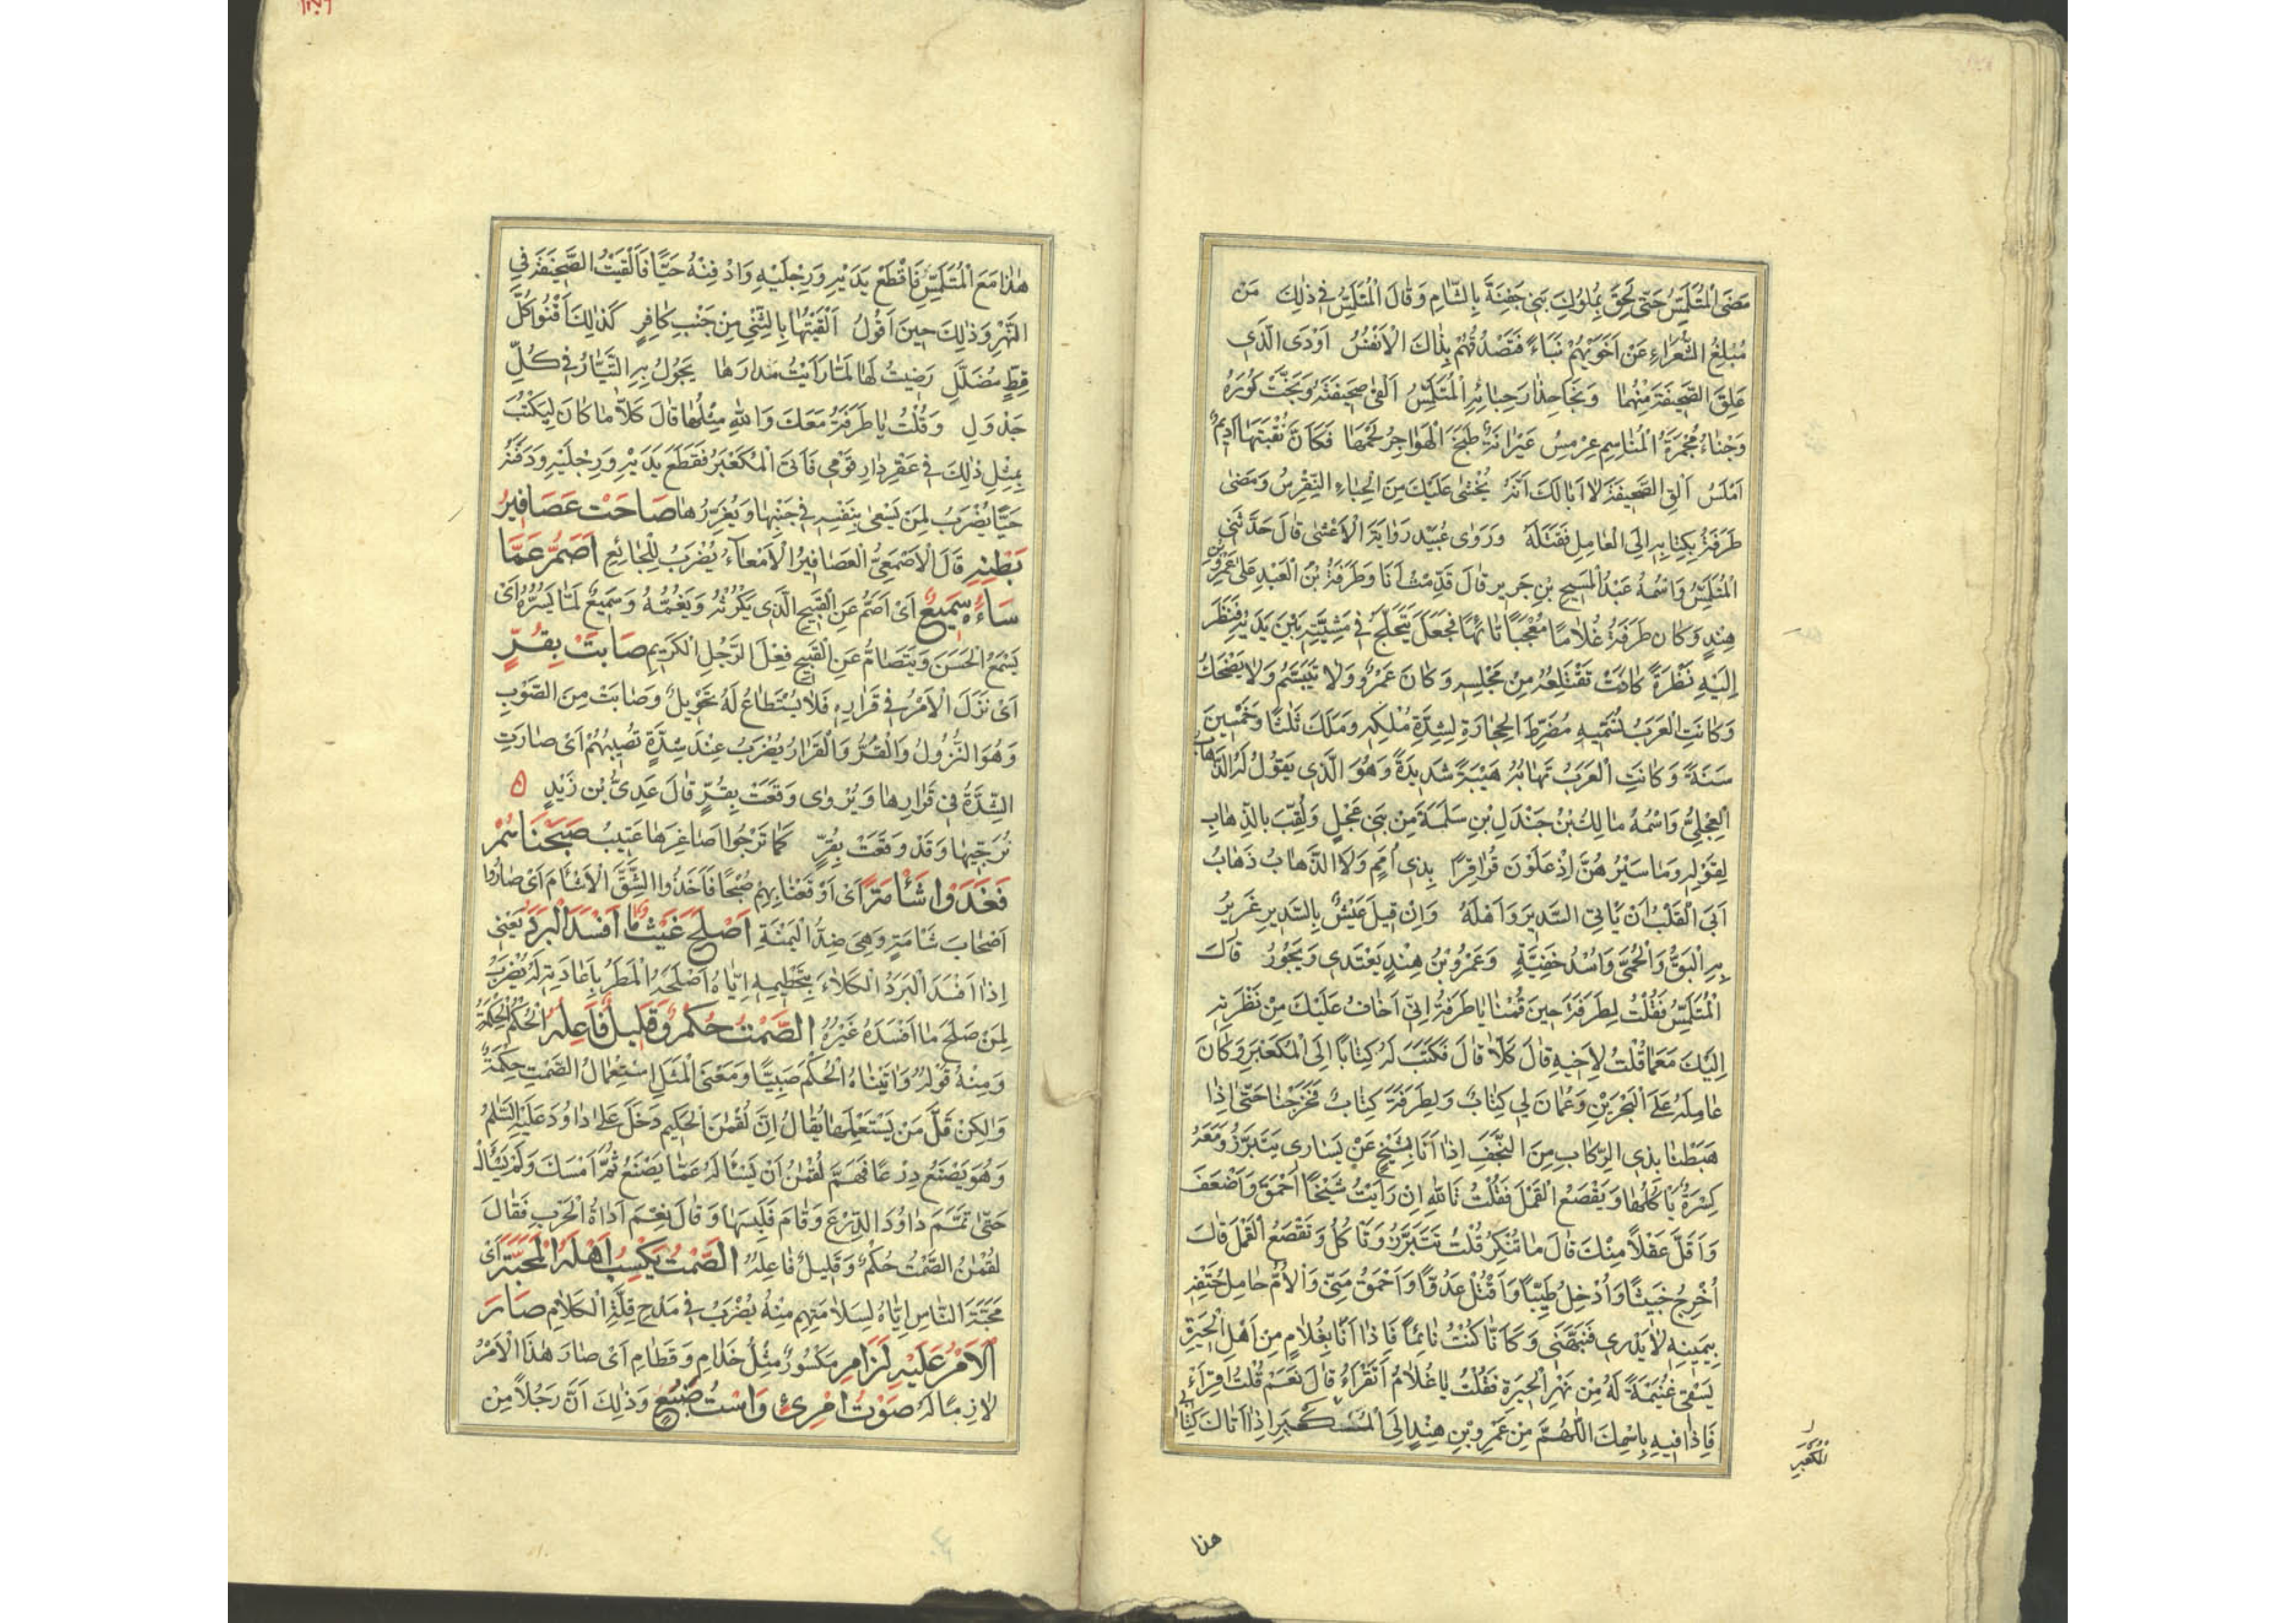 مَضَى الْمُتَلَمِّسُ حَتّٰى لَحِقَ بِمُلُوكِ بَنِي جَفْنَةَ بِالشَّامِ وَقَالَ الْمُتَلَمِّسُ فِي ذٰلِكَ مَنْ
مُبْلِغُ الشُّعَرَاءِ عَنْ اَخَوَيْهِمْ نَبَاءً فَتَصْدُقُهُمْ بِذَاكَ الْاَنْفُسُ اَوْدَى الَّذِي
عَلِقَ الصَّحِيفَةَ مِنْهُمَا وَنَجَا حِذَارَ حِبَائِهِ الْمُتَلَمِّسُ اَلْقٰى صَحِيفَتَهُ وَنَجَّتْ كُورَهُ
وَجْنَاءُ مُجْمَرَةُ الْمَنَاسِمِ عِرْمِسُ عَيْرَانَةٌ طَبَخَ الْهَوَاجِرُ لَحْمَهَا فَكَاَنَّ نُقْبَتَهَا اَدِيمٌ
اَمْلَسُ اَلْقِ الصَّحِيفَةَ لَا اَبَالَكَ اَنَّهُ يُخْشٰى عَلَيْكَ مِنَ الْحِبَاءِ النِّقْرِسُ وَمَضٰى
طَرَفَةُ بِكِتَابِهِ اِلَى الْعَامِلِ فَقَتَلَهُ وَرَوٰى عُبَيْد رَوَايَةَ الْاَعْشٰى قَالَ حَدَّثَنِي
الْمُتَلَمِّسُ وَاسْمُهُ عَبْدُ الْمَسِيحِ بْنِ جَرِيرٍ قَالَ قَدِمْتُ اَنَا وَطَرَفَةُ بْنُ الْعَبْدِ عَلٰى عَمْرِو بْنِ
هِنْدٍ وَكَانَ طَرَفَةُ غُلَامًا مُعْجَبًا تَائِهًا فَجَعَلَ يَتَخَلَّجُ فِي مَشِيَّتِهِ بَيْنَ يَدَيْهِ فَنَظَرَ
اِلَيْهِ نَظْرَةً كَادَتْ تَقْتَلِعُهُ مِنْ مَجْلِسِهِ وَكَانَ عَمْرٌو لَا يَتَبَسَّمُ وَلَا يَضْحَكُ
وَكَانَتِ الْعَرَبُ تُسَمِّيهِ مُضَرِّطَ الْحِجَارَةِ لِشِدَّةِ مُلْكِهِ وَمَلَكَ ثَلٰثًا وَخَمْسِينَ
سَنَةً وَكَانَتِ الْعَرَبُ تَهَابُهُ هَيْبَةً شَدِيدَةً وَهُوَ الَّذِي يَقُولُ لَهُ الذَّهَابُ
الْعِجْلِيُّ وَاسْمُهُ مَالِكُ بْنُ جَنْدَلِ بْنِ سَلَمَةَ مِنْ بَنِي عِجْلٍ وَلُقِّبَ بِالذَّهَابِ
لِقَوْلِهِ وَمَا سَيْرُهُنَّ اِذْ عَلَوْنَ قُرَاقِرًا بِذِي اُمَمٍ وَلَا الذَّهَابُ ذَهَابُ
اَبَى الْقَلْبُ اَنْ يَاْتِيَ السَّدِيرَ وَاَهْلَهُ وَاِنْ قِيلَ عَيْشٌ بِالسَّدِيرِ غَرِيرُ
بِهِ الْبَقُّ وَالْحُمّٰى وَاُسْدُ خَفِيَّةٍ وَعَمْرُو بْنُ هِنْدٍ يَعْتَدِي وَيَجُورُ قَالَ
الْمُتَلَمِّسُ فَقُلْتُ لِطَرَفَةَ حِينَ قُمْنَا يَا طَرَفَةُ اِنِّي اَخَافُ عَلَيْكَ مِنْ نَظْرَتِهِ
اِلَيْكَ مَعَمَا قُلْتَ لِاَخِيهِ قَالَ كَلَّا قَالَ فَكَتَبَ لَهُ كِتَابًا اِلَى الْمُكَعْبَرِ وَكَانَ
عَامِلَهُ عَلَى الْبَحْرَيْنِ وَعُمَانَ لِي كِتَابٌ وَلِطَرَفَةَ كِتَابٌ فَخَرَجْنَا حَتّٰى اِذَا
هَبَطْنَا بِذِي الرِّكَابِ مِنَ النَّجَفِ اِذَا اَنَا بِشَيْخٍ عَنْ يَسَارِي يَتَبَرَّزُ وَمَعَهُ
كِسْرَةٌ يَاْكُلُهَا وَيَقْصَعُ الْقَمْلَ فَقُلْتُ تَاللّٰهِ اِنْ رَاَيْتُ شَيْخًا اَحْمَقَ وَاَضْعَفَ
وَاَقَلَّ عَقْلًا مِنْكَ قَالَ مَا تُنْكِرُ قُلْتُ تَتَبَرَّزُ وَتَاْكُلُ وَتَقْصَعُ الْقَمْلَ قَالَ
اُخْرِجُ خَبِيثًا وَاُدْخِلُ طَيِّبًا وَاَقْتُلُ عَدُوًّا وَاَحْمَقُ مِنِّي وَاَلْاَمُ حَامِلُ حَتْفِهِ
بِيَمِينِهِ لَا يَدْرِي فَنَبَّهَنِي وَكَاَنَّمَا كُنْتُ نَائِمًا فَاِذَا اَنَا بِغُلَامٍ مِنْ اَهْلِ الْحِيرَةِ
يَسْقِي غُنَيْمَةً لَهُ مِنْ نَهْرِ الْحِيرَةِ فَقُلْتُ يَا غُلَامُ اَتَقْرَاُ قَالَ نَعَمْ قُلْتُ اِقْرَاْ
فَاِذَا فِيهِ بِاسْمِكَ اللّٰهُمَّ مِنْ عَمْرِو بْنِ هِنْدٍ اِلَى اِذَا اَتَاكَ كِتَابِي
المكعبر
هذا
هٰذَا مَعَ الْمُتَلَمِّسِ فَاقْطَعْ يَدَيْهِ وَرِجْلَيْهِ وَادْفِنْهُ حَيًّا فَاَلْقَيْتُ الصَّحِيفَةَ فِي
النَّهْرِ وَذٰلِكَ حِينَ اَقُولُ اَلْقَيْتُهَا بِالثِّنْيِ مِنْ جَنْبِ كَافِرٍ كَذٰلِكَ اَقْنُو كُلَّ
قِطٍّ مُضَلَّلِ رَضِيتُ لَهَا لَمَّا رَاَيْتُ مَدَارَهَا يَجُولُ بِهِ التَّيَّارُ فِي كُلِّ
جَدْوَلِ وَقُلْتُ يَا طَرَفَةُ مَعَكَ وَاللّٰهِ مِثْلُهَا قَالَ كَلَّا مَا كَانَ لِيَكْتُبَ
بِمِثْلِ ذٰلِكَ فِي عَقْرِ دَارِ قَوْمِي فَاَتَى الْمُكَعْبَرَ فَقَطَعَ يَدَيْهِ وَرِجْلَيْهِ وَدَفَنَهُ
حَيًّا يُضْرَبُ لِمَنْ يَسْعٰى بِنَفْسِهِ فِي حَيْنِهَا وَيُغَرِّرُهَا صَاحَتْ عَصَافِيرُ
بَطْنِهِ قَالَ الْاَصْمَعِيُّ الْعَصَافِيرُ الْاَمْعَاءُ يُضْرَبُ لِلْجَائِعِ اَصَمُّ عَمَّا
سَاءَهُ سَمِيعٌ اَيْ اَصَمُّ عَنِ الْقَبِيحِ الَّذِي يَكْرُثُهُ وَيَغُمُّهُ وَسَمِيعٌ لِمَا يَسُرُّهُ اَيْ
يَسْمَعُ الْحَسَنَ وَيَتَصَامُّ عَنِ الْقَبِيحِ فِعْلَ الرَّجُلِ الْكَرِيمِ صَابَتْ بِقُرٍّ
اَيْ نَزَلَ الْاَمْرُ فِي قَرَارِهِ فَلَا يُسْتَطَاعُ لَهُ تَحْوِيلٌ وَصَابَتْ مِنَ الصَّوْبِ
وَهُوَ النُّزُولُ وَالْقُرُّ وَالْقَرَارُ يُضْرَبُ عِنْدَ شِدَّةٍ تُصِيبُهُمْ اَيْ صَارَتِ
الشِّدَّةُ فِي قَرَارِهَا وَيُرْوٰى وَقَعَتْ بِقُرٍّ قَالَ عَدِيُّ بْنُ زَيْدٍ ه
تُرَجِّيهَا وَقَدْ وَقَعَتْ بِقُرٍّ كَمَا تَرْجُوا اَصَاغِرَهَا عَتِيبُ صَبَّحْنَاهُمْ
فَغَدَوْا شَاْمَةً اَيْ اَوْقَعْنَا بِهِمْ صُبْحًا فَاَخَذُوا الشِّقَّ الْاَشْاَمَ اَيْ صَارُوا
اَصْحَابَ شَاْمَةٍ وَهِيَ ضِدُّ الْيَمْنَةِ اَصْلَحَ غَيْثٌ مَا اَفْسَدَ الْبَرَدُ يَعْنِي
اِذَا اَفْسَدَ الْبَرَدُ الْكَلَاءَ بِتَحْطِيمِهِ اِيَّاهُ اَصْلَحَهُ الْمَطَرُ بِاِعَادَتِهِ لَهُ يُضْرَبُ
لِمَنْ صَلَحَ مَا اَفْسَدَهُ غَيْرُهُ الصَّمْتُ حُكْمٌ وَقَلِيلٌ فَاعِلُهُ الْحُكْمُ الْحِكْمَةُ
وَمِنْهُ قَوْلُهُ وَاٰتَيْنَاهُ الْحُكْمَ صَبِيًّا وَمَعْنَى الْمَثَلِ اِسْتِعْمَالُ الصَّمْتِ حِكْمَةٌ
وَلٰكِنْ قَلَّ مَنْ يَسْتَعْمِلُهَا يُقَالُ اِنَّ لُقْمٰنَ الْحَكِيمَ دَخَلَ عَلٰى دَاوُدَ عَلَيْهِ السَّلٰمُ
وَهُوَ يَصْنَعُ دِرْعًا فَهَمَّ لُقْمٰنُ اَنْ يَسْاَلَهُ عَمَّا يَصْنَعُ ثُمَّ اَمْسَكَ وَلَمْ يَسْاَلْ
حَتّٰى تَمَّمَ دَاوُدُ الدِّرْعَ وَقَامَ فَلَبِسَهَا وَقَالَ نِعْمَ اَدَاةُ الْحَرْبِ فَقَالَ
لُقْمٰنُ الصَّمْتُ حُكْمٌ وَقَلِيلٌ فَاعِلُهُ الصَّمْتُ يَكْسِبُ اَهْلَهُ الْمَحَبَّةَ اَيْ
مَحَبَّةَ النَّاسِ اِيَّاهُ لِسَلَامَتِهِمْ مِنْهُ يُضْرَبُ فِي مَدْحِ قِلَّةِ الْكَلَامِ صَارَ
الْاَمْرُ عَلَيْهِ لَزَامِ مَكْسُورٌ مِثْلُ حَذَامِ وَقَطَامِ اَيْ صَارَ هٰذَا الْاَمْرُ
لَازِمًا لَهُ صَوْتُ امْرِئٍ وَاسْتُ ضَبُعٍ وَذٰلِكَ اَنَّ رَجُلًا مِنْ